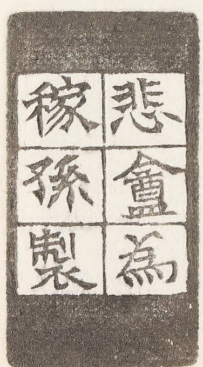 悲盦為
稼孫製